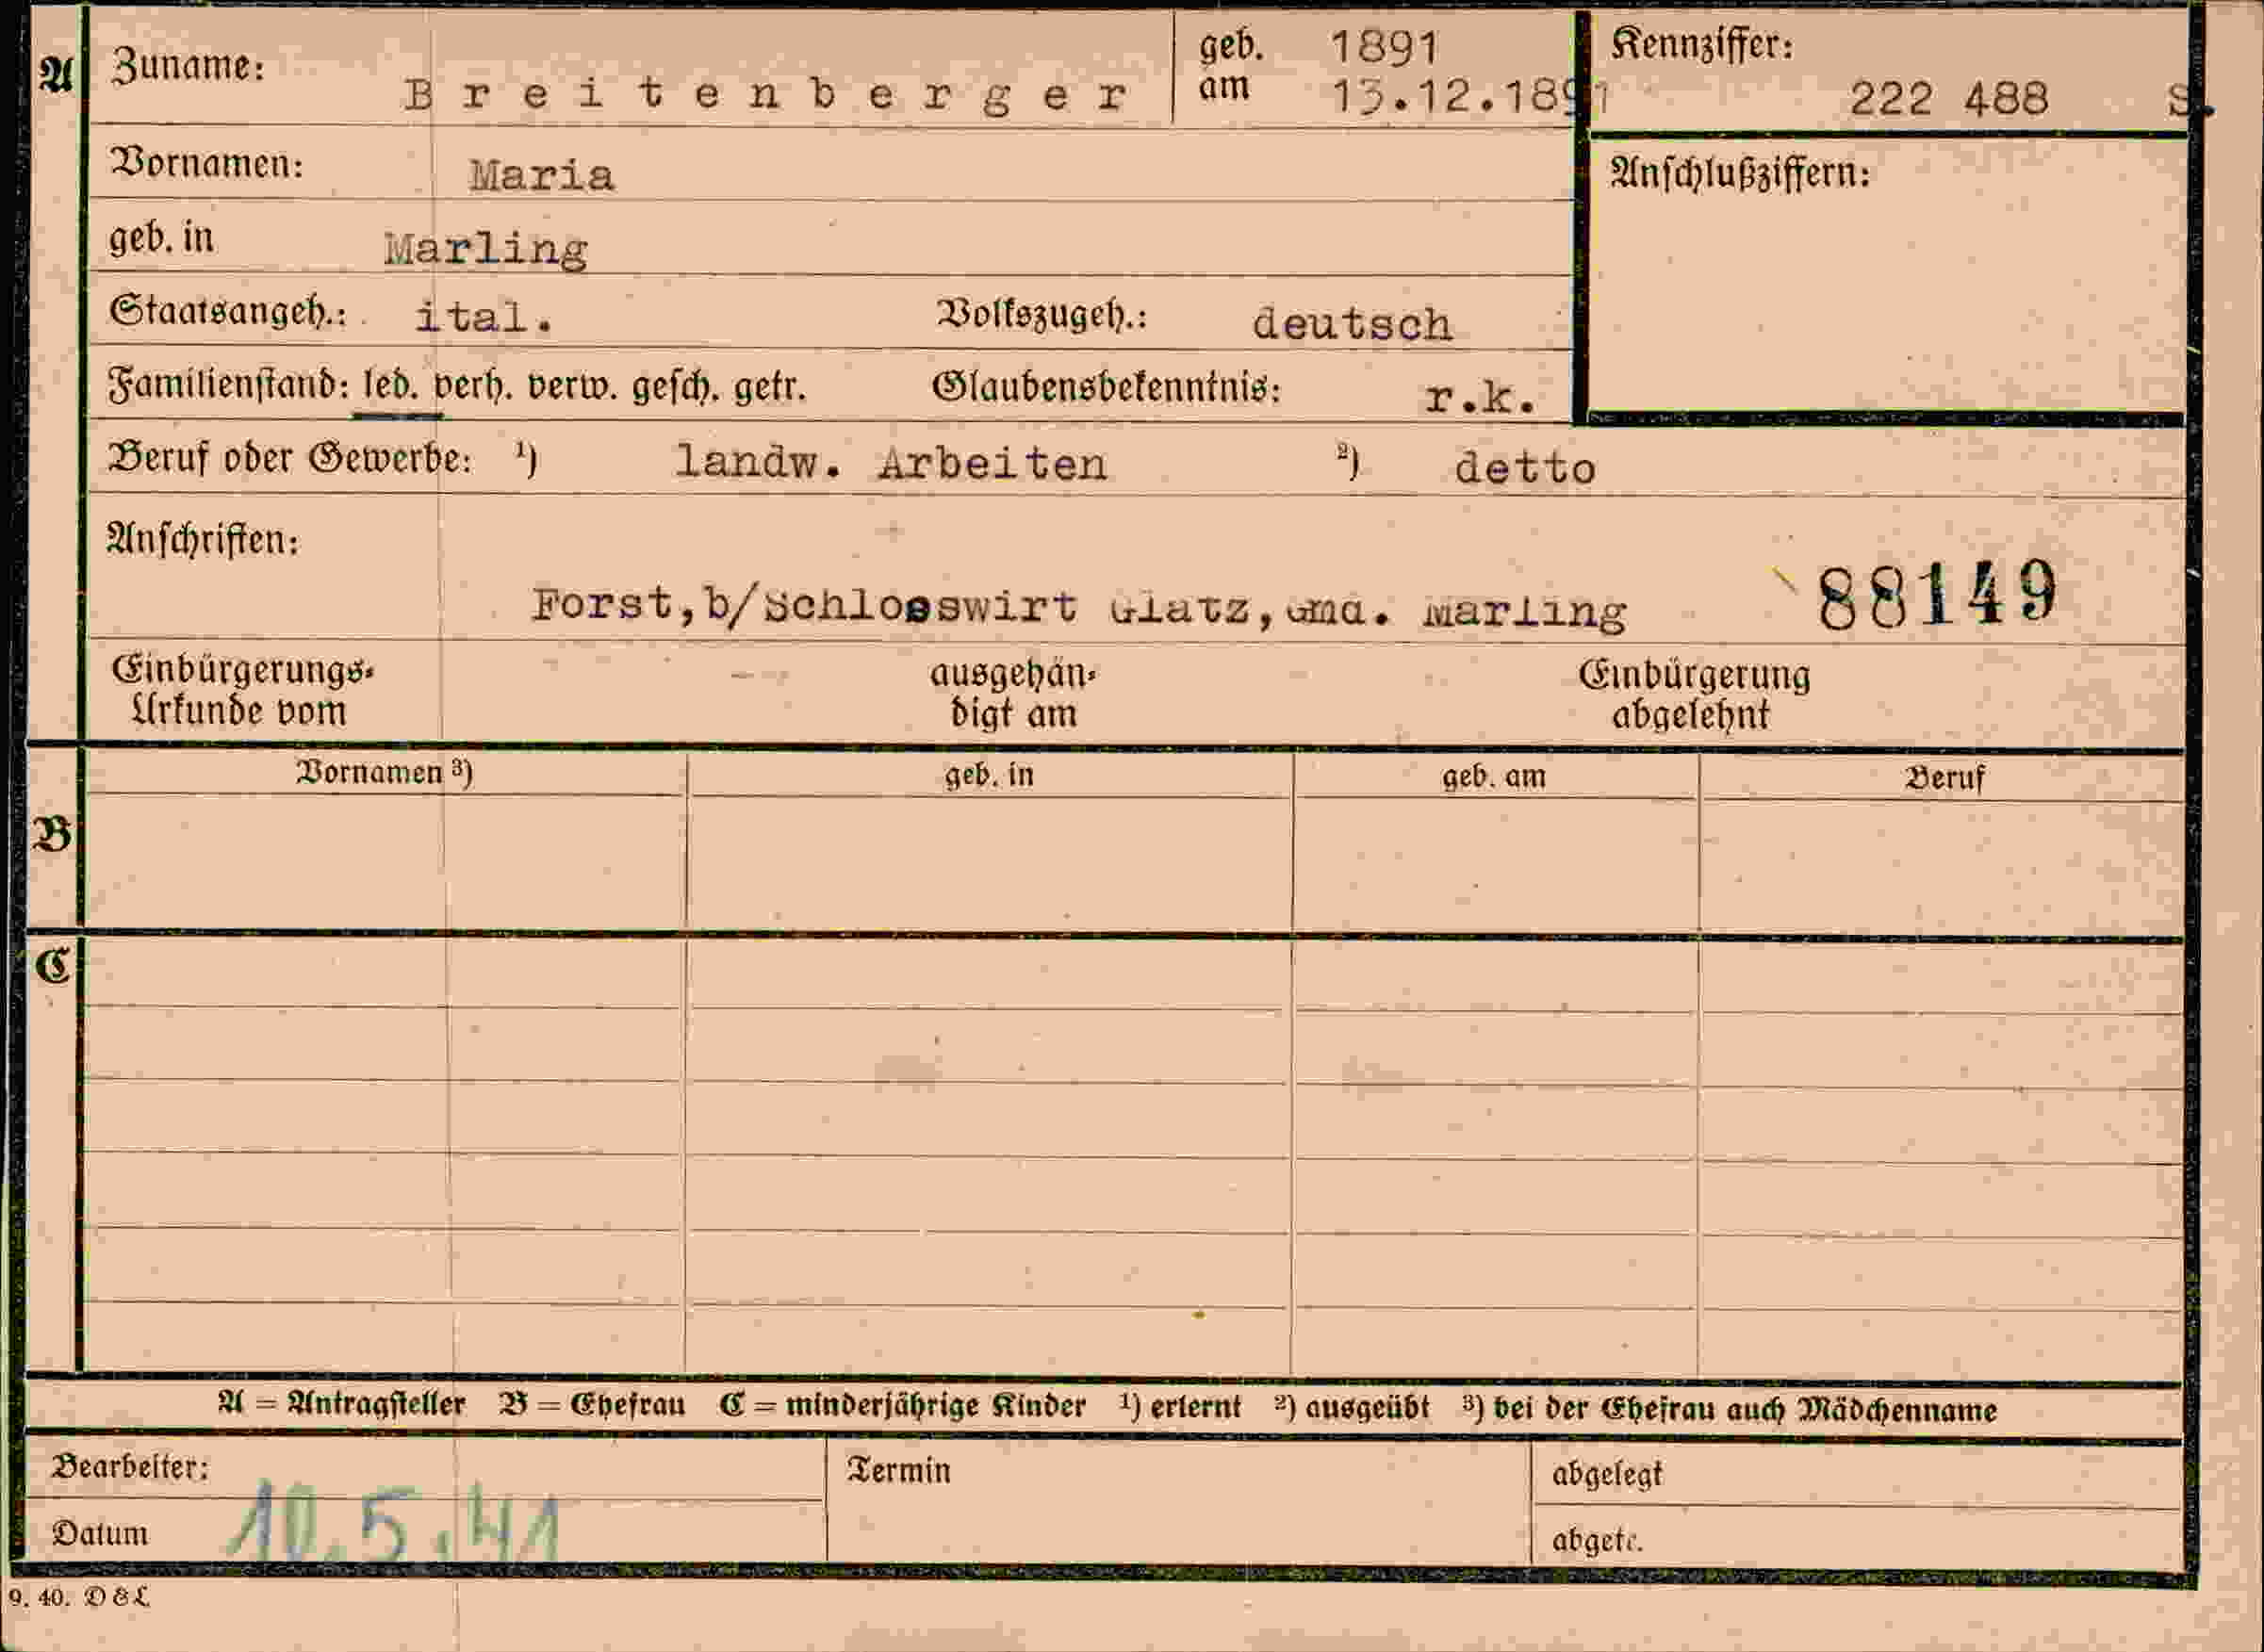 A Zuname: Breitenberger geb. am 1891 13.12.1891 Kennziffer: 222 488 S.
Vornamen: Maria Anschlußziffern:
geb. in Marling
Staatsangeh.: ital. Volkszugeh.: deutsch
Familienstand: led. verh. verw. gesch. getr. Glaubensbekenntnis: r.k.
Beruf oder Gewerbe: ¹) landw. Arbeiten ²) detto
Anschriften:
Forst,b/Schlosswirt Glatz,Gmd. Marling 88149
Einbürgerungs- ausgehän- Einbürgerung
Urkunde vom digt am abgelehnt
Vornamen ³) geb. in geb. am Beruf
B
C
A = Antragsteller B = Ehefrau C = minderjährige Kinder ¹) erlernt ²) ausgeübt ³) bei der Ehefrau auch Mädchenname
Bearbeiter: Termin abgelegt
Datum 10.5.41 abgetr.
9. 40. D & L